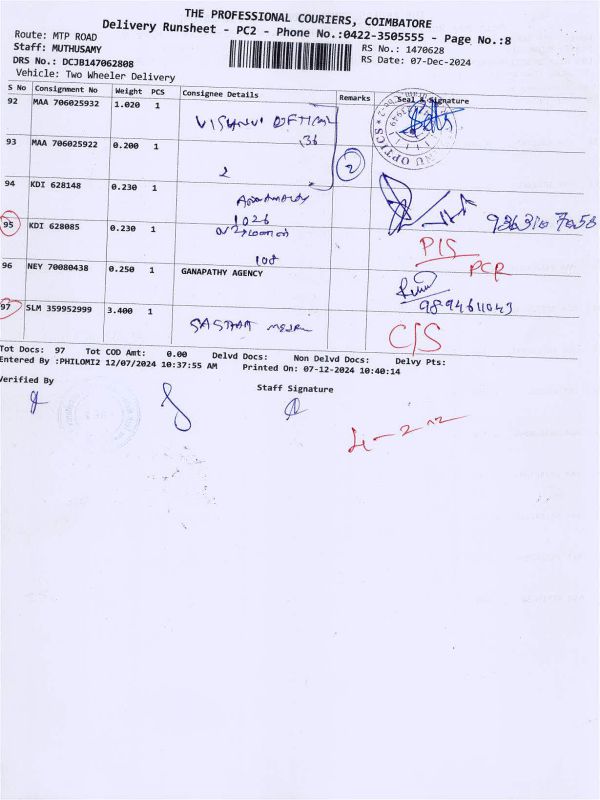 THE PROFESSIONAL COURIERS, COIMBATORE
Delivery Runsheet - PC2 - Phone No.:0422-3505555 - Page No.:8
Route: MTP ROAD
RS No.: 1470628
Staff: MUTHUSAMY
RS Date: 07-Dec-2024
DRS No.: DCJB147062808
Vehicle: Two Wheeler Delivery
S No Consignment No Weight PCS Consignee Details Remarks Seal & Signature
92 MAA 706025932 1.020 1 VISHNU OPTICAL
36
93 MAA 706025922 0.200 1
2 2
94 KDI 628148 0.230 1
1026
9363107058
95 KDI 628085 0.230 1
108
PIS
PCR
96 NEY 70080438 0.250 1 GANAPATHY AGENCY
9894611043
97 SLM 359952999 3.400 1 SASTHAA
C/S
Tot Docs: 97 Tot COD Amt: 0.00 Delvd Docs: Non Delvd Docs: Delvy Pts:
Entered By :PHILOMI2 12/07/2024 10:37:55 AM Printed On: 07-12-2024 10:40:14
Verified By
Staff Signature